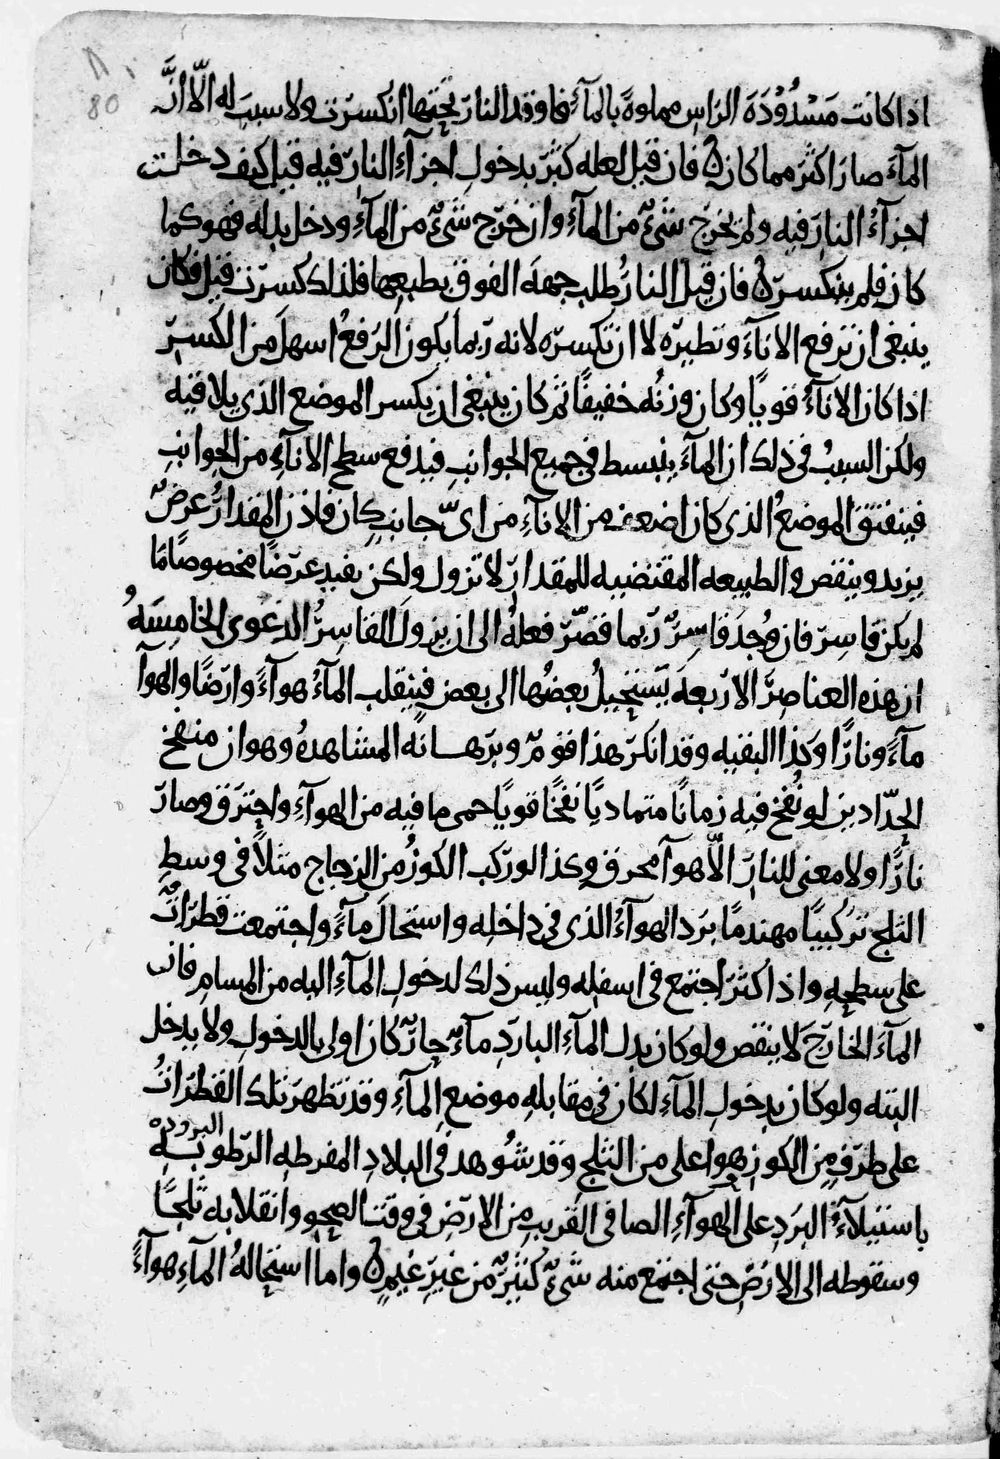 ٨٠
80
اذا كانت مَسْدُوْدَةَ الراس مملوةً بالمآءِ فاوقد النار تحتها انكسرت ولا سبب له الّا انَّ
المآءَ صار اكثر مما كان ۵ فان قيل لعله كثر بدخول اجزآءِ النار فيه قيل كيف دخلت
اجزآءُ النار فيه ولم يخرج شىءٌ من المآءِ وان خرج شىءٌ من المآءِ ودخل بدله فهو كما
كان فلم ينكسر ۵ فان قيل النارُ طلب جهة الفوق بطبعها فلذلك كسرت قيل فكان
ينبغى ان ترفع الانآءَ وتطيره لا ان تكسره لانه ربما يكون الرفعُ اسهلَ من الكسر
اذا كان الانآءُ قويًا وكان وزنُه خفيفًا ثم كان ينبغى ان يكسر الموضع الذى يلاقيه
ولكن السببُ فى ذلك ان المآءَ ينبسط فى جميع الجوانب فيدفع سطح الانآءِ من الجوانبِ
فينفتق الموضعُ الذى كان اضعف من الانآءِ من اىّ جانبٍ كان فاذن المقدارُ عرضٌ
يزيد وينقص والطبيعه المقتضيه للمقدار لا تزول ولكن يفيد عرضًا مخصوصًا ما
لم يكن قاسِر فان وُجِدَ قاسِرٌ ربما قصّر فعلهُ الى ان يزولَ القاسِرُ الدعوى الخامِسَهُ
ان هذه العناصِرَ الاربعهَ يَستحيلُ بعضُها الى بعض فينقلب المآءُ هوآءً وارضًا والهوآ
مآءً ونارًا وكذا البقيه وقد انكر هذا قومٌ وبرهانه المشاهدهُ وهو ان منفخ
الحدّادين لو نُفخ فيه زمانًا متماديًا نفخًا قويًا حمى ما فيه من الهوآءِ واحترق وصار
نارًا ولا معنى للنار الّا هوآ محرق وكذا لو ركب الكوزُ من الزجاج مثلاً فى وسطِ
الثلج تركيبًا مهندمًا برد الهوآءُ الذى فى داخله واستحالَ مآءً واجتمعت قطراتٌ
على سطحِهِ واذا كثر اجتمع فى اسفله وليس ذلك لدخول المآءِ اليه من المسام فان
المآءَ الخارجَ لا ينقص ولو كان بدل المآءِ البارد مآءٌ حارٌّ كان اولى بالدخول ولا يدخل
البته ولو كان بدخول المآءِ لكان فى مقابلهِ موضع المآءِ وقد تظهر تلك القطراتُ
على طرفٍ من الكوز هو اعلى من الثلج وقد شُوهد فى البلادِ المفرطه الرطوبه البروده
باستيلآءُ البَردِ على الهوآءِ الصافى القريب من الارضِ فى وقت الصحو وانقلابه ثلجًا
وسقوطه الى الارض حتى اجتمع منه شىءٌ كثيرٌ من غير غيمٍ ۵ واما استحالهُ المآءِ هوآءً